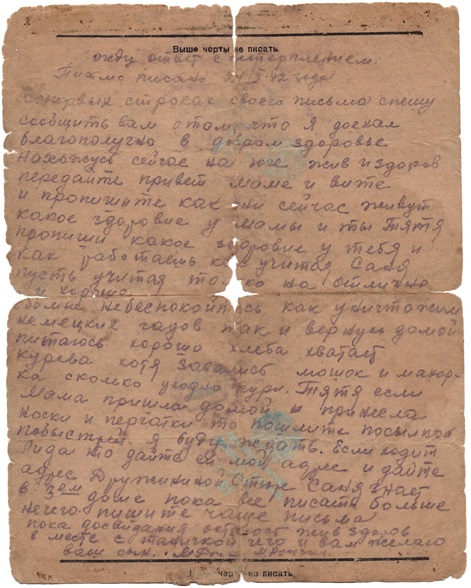 Выше черты не писать.
жду ответ с нетерпением.
Письмо писано 42 года
Впервых строках своего письма спешу
сообщить вам о том, что я доехал
благополучно в добром здоровье
Нахожусь сейчас на юге жив и здоров
передайте привет маме и вите
и пропишите как они сейчас живут
какое здоровие у мамы и ты Тятя
пропиши какое здоровие у тебя и
как работаешь как учится Саня
пусть учится только на отлично
и хорошо.
обомне небеспокойтесь как уничтожим
немецких гадов так и вернусь домой
питаюсь хорошо хлеба хватает
курева хотя завались мошок и махор-
ка сколько угодно кури. Тятя если
Мама пришла домой и принесла
носки и перчатки то пошлите посылкой
побыстрей я буду ждать. Если ходит
Лида то дайте ей мой адрес и дайте
адрес Дружининой Саня знает
в 3ем доме пока все писать больше
нечего пишите чаще письма
пока досвидания остаюсь жив здоров
в месте с таничкой чего и вам желаю
ваш сын.
черты не писать